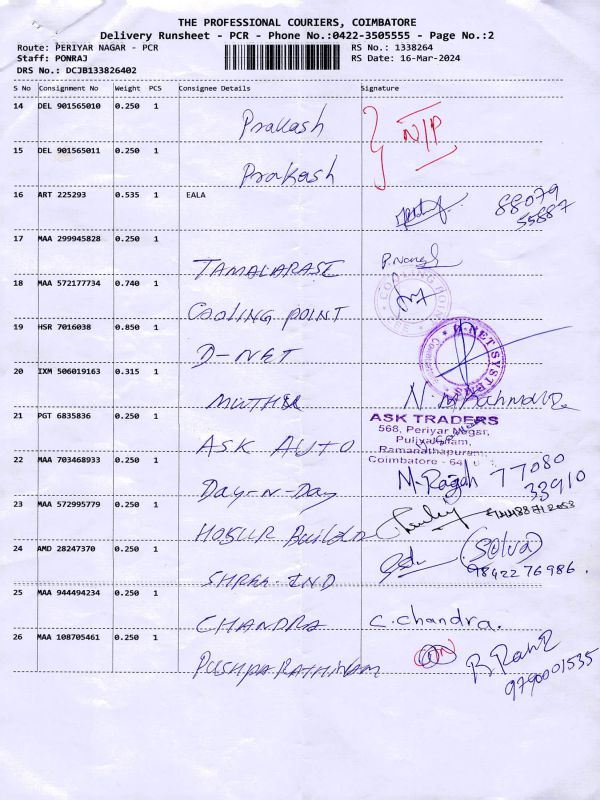 THE PROFESSIONAL COURIERS, COIMBATORE
Delivery Runsheet - PCR - Phone No.:0422-3505555 - Page No.:2
Route: PERIYAR NAGAR - PCR RS No.: 1338264
Staff: PONRAJ RS Date: 16-Mar-2024
DRS No.: DCJB133826402
S No Consignment No Weight PCS Consignee Details Signature
14 DEL 901565010 0.250 1 Prakash N/P
15 DEL 901565011 0.250 1 Prakash
16 ART 225293 0.535 1 EALA 88079
55887
17 MAA 299945828 0.250 1 TAMALARASE
18 MAA 572177734 0.740 1 COOLING POINT
COOLING POINT
19 HSR 7016038 0.850 1 D-NET
D-NET SYSTEMS
20 IXM 506019163 0.315 1 MUTHU
21 PGT 6835836 0.250 1 ASK AUTO
ASK TRADERS
568, Periyar Nagar,
Puliyakulam,
Ramanathapuram,
Coimbatore - 641
22 MAA 703468933 0.250 1 Day-N-Day M. Ragah 77080
33910
23 MAA 572995779 0.250 1
24 AMD 28247370 0.250 1 SHREE-IND (Selva)
9842276986.
25 MAA 944494234 0.250 1 CHANDRA C. chandra.
26 MAA 108705461 0.250 1 PUSHPARATHINAM
9790001535